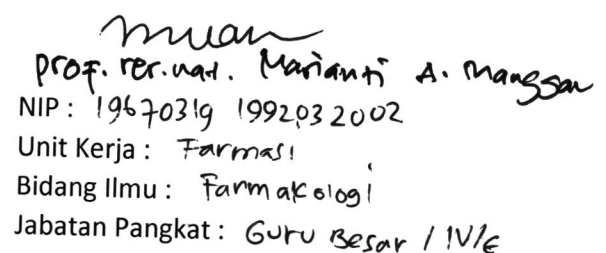 prof. rer.nat. Marianti A. Manggau
NIP : 19670319 199203 2002
Unit Kerja : Farmasi
Bidang Ilmu : Farmakologi
Jabatan Pangkat : Guru Besar / IV/e